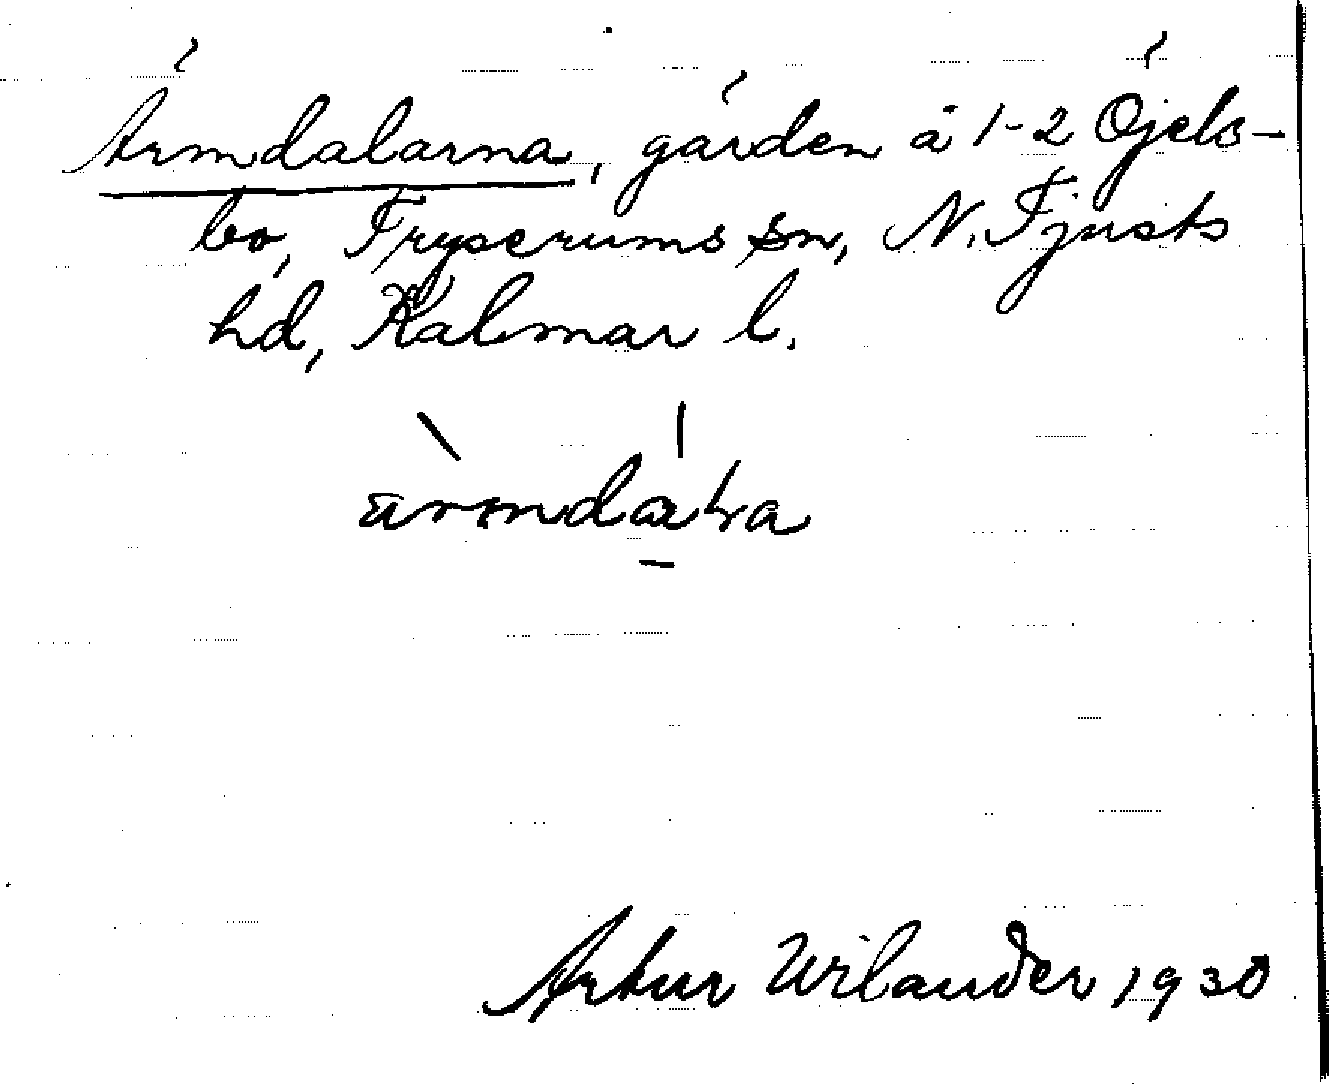 Ärmdalarna, gärden å 1-2 Öjels-
bo, Fryserums sn, N. Tjusts
hd, Kalmar l.
Artur Wilander 1930